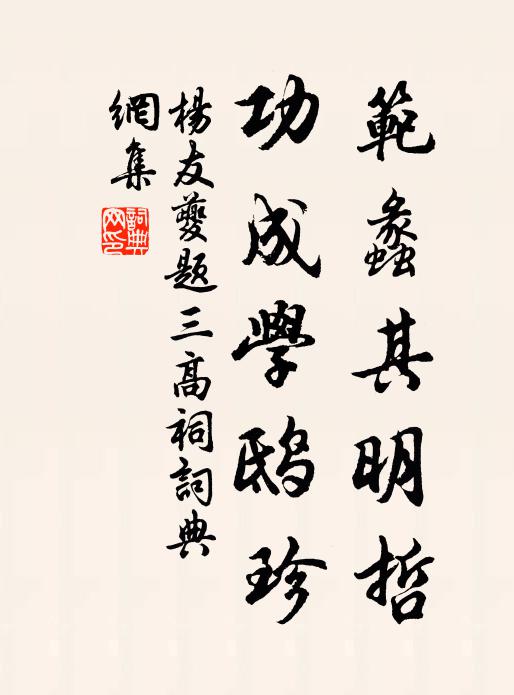 範蠡其明哲
功成學鴟珍
楊友夔題三高祠詞典
網集
詞典
网印